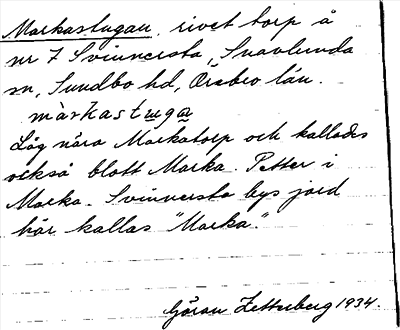 Markastugan, rivet torp å
nr 7 Svinnersta, Snavlunda
sn, Sundbo hd, Örebro län.
màrkastuga
Låg nära Markatorp och kallades
också blott Marka. Petter i
Marka. Svinnersta bys jord
här kallas "Marka".
Göran Zetterberg 1934.